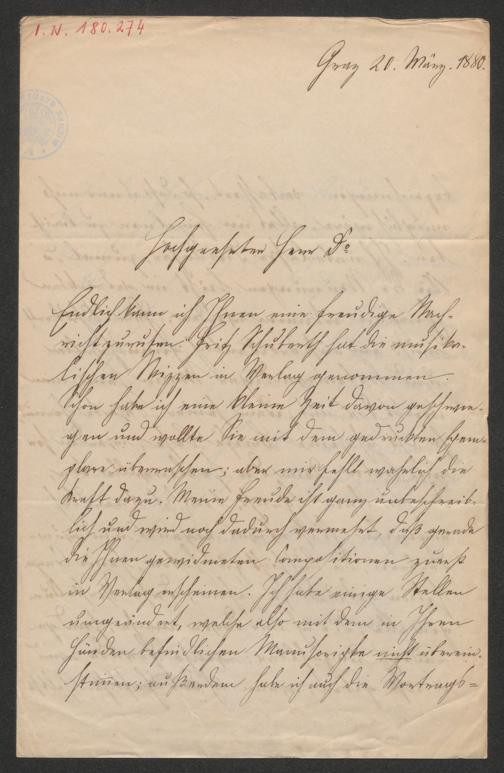 I. N. 180.274
Graz 20. März. 1880.
Hochgeehrter Herr Dr
Endlich kann ich Ihnen eine freudige Nach-
richt zurufen. Fritz Schuberth hat die musika-
lischen Skizzen in Verlag genommen.
Schon habe ich eine kleine Zeit davon geschwie-
gen und wollte Sie mit dem gedruckten Exem-
plare überraschen; aber mir fehlt wahrlich die
Kraft dazu. Meine Freude ist ganz unbeschreib-
lich und wird noch dadurch vermehrt, daß gerade
die Ihnen gewidmeten Compositionen zuerst
in Verlag erscheinen. Ich habe einige Stellen
umgeändert, welche also mit dem in Ihren
Händen befindlichen Manuscripte nicht überein-
stimmen; außerdem habe ich auch die Vortrags=